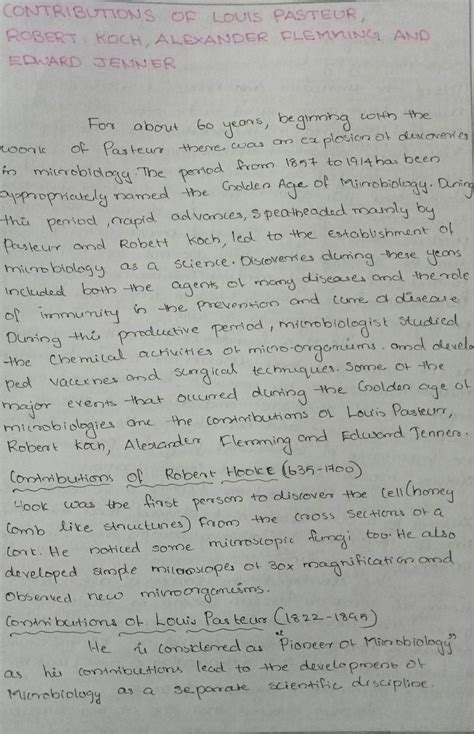 CONTRIBUTIONS OF LOUIS PASTEUR,
ROBERT KOCH, ALEXANDER FLEMMING AND
EDWARD JENNER
For about 60 years, beginning with the
work of Pasteur there was an explosion of discoveries
in microbiology. The period from 1857 to 1914 has been
appropriately named the Golden Age of Microbiology. During
this period, rapid advances, spearheaded mainly by
Pasteur and Robert Koch, led to the establishment of
microbiology as a science. Discoveries during these years
included both the agents of many diseases and the role
of immunity in the prevention and cure of disease.
During this productive period, microbiologist studied
the chemical activities of micro-organisms. and develo
ped vaccines and surgical techniques. Some of the
major events that occured during the Golden age of
microbiologies are the contributions of Louis Pasteur,
Robert Koch, Alexander Flemming and Edward Jenner.
Contributions of Robert HOOKE (635-1700)
Hook was the first person to discover the cell (honey
comb like structures) from the cross sections of a
cork. He noticed some microscopic fungi too. He also
developed simple microscopes of 30x magnification and
observed new microorganisms.
Contributions of Louis Pasteur (1822-1895)
He is considered as "Pioneer of Microbiology"
as his contributions lead to the development of
Microbiology as a separate scientific discipline.